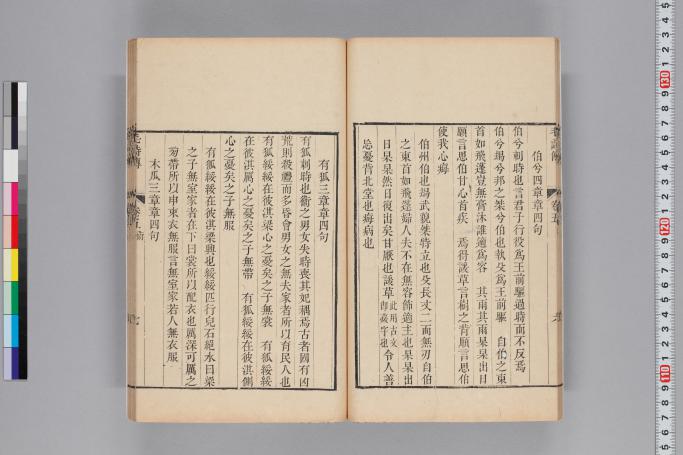 伯兮四章章四句
伯兮刺時也言君子行役為王前驅過時而不反焉
伯兮朅兮邦之桀兮伯也執殳爲王前驅　自伯之東
首如飛蓬豈無膏沐誰適爲容　其雨其雨杲杲出日
願言思伯甘心首疾　焉得諼草言樹之背願言思伯
使我心痗
伯州伯也朅武貌桀特立也殳長丈二而無刃自伯
之東首如飛蓬婦人夫不在無容飾適主也杲杲出
日杲杲然日復出矣甘厭也諼草此用古文卽萱字也令人善
忘憂背北堂也痗病也
有狐三章章四句
有狐刺時也衞之男女失時喪其妃耦焉古者國有凶
荒則殺禮而多昏會男女之無夫家者所以育民人也
有狐綏綏在彼淇梁心之憂矣之子無裳　有狐綏綏
在彼淇厲心之憂矣之子無帶　有狐綏綏在彼淇側
心之憂矣之子無服
有狐綏綏在彼淇梁興也綏綏匹行皃石絕水曰梁
之子無室家者在下曰裳所以配衣也厲深可厲之
旁帶所以申束衣無服言無室家若人無衣服
木瓜三章章四句